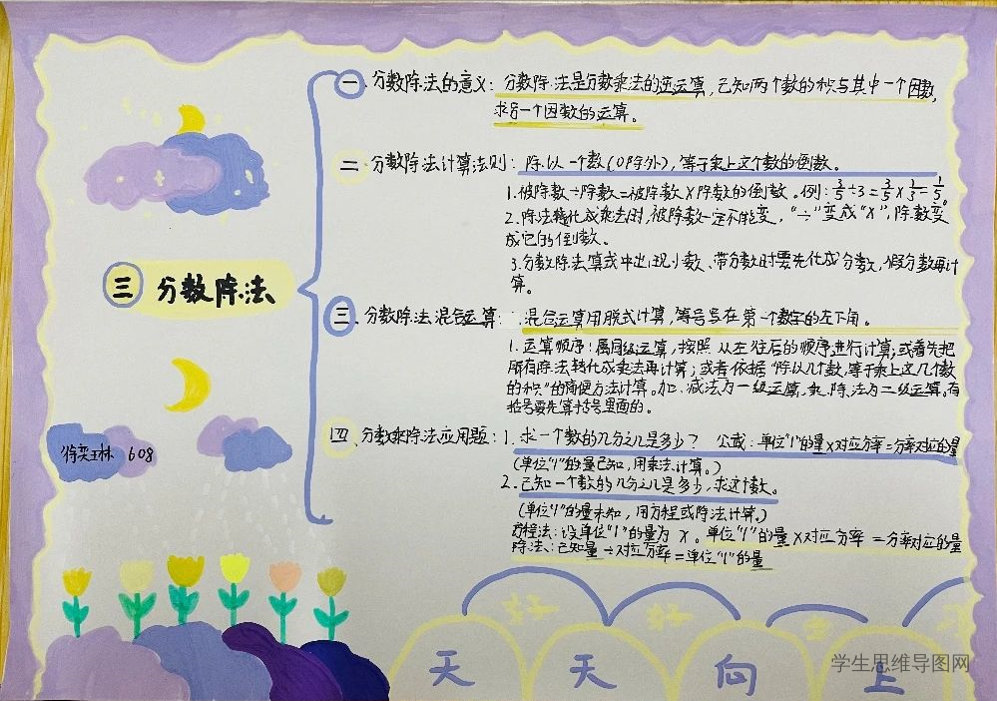 三 分数除法
一、分数除法的意义：分数除法是分数乘法的逆运算，已知两个数的积与其中一个因数，
求另一个因数的运算。
二、分数除法计算法则：除以一个数(0除外)，等于乘上这个数的倒数。
1.被除数÷除数=被除数×除数的倒数。例：3/5÷3=3/5×1/3=1/5。
2.除法转化成乘法时，被除数一定不能变，“÷”变成“×”，除数变
成它的倒数。
3.分数除法算式中出现小数、带分数时要先化成分数，假分数再计
算。
三、分数除法混合运算：混合运算用脱式计算，等号写在第一个数字的左下角。
1.运算顺序：属同级运算，按照从左往后的顺序进行计算；或者先把
所有除法转化成乘法再计算；或者依据“除以几个数，等于乘上这几个数
的积”的简便方法计算。加、减法为一级运算，乘、除法为二级运算。有
括号要先算括号里面的。
四、分数乘除法应用题：1.求一个数的几分之几是多少？ 公式：单位“1”的量×对应分率=分率对应的量
(单位“1”的量已知，用乘法计算。)
2.已知一个数的几分之几是多少，求这个数。
(单位“1”的量未知，用方程或除法计算。)
方程法：设单位“1”的量为x。单位“1”的量×对应分率=分率对应的量
除法：已知量÷对应分率=单位“1”的量
608
好 好
天 天 向 上
学生思维导图网